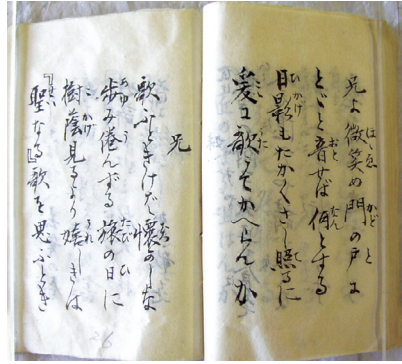 兄よ微笑め門の戸に
とゞと音せば何とする
日影もたかくさし照るに
爰に歌うてかへらんか
兄
歌ふときけば懐かしな
歩み倦んずる旅の日に
樹陰見るより嬉しきは
『聖なる』歌を思ふとき